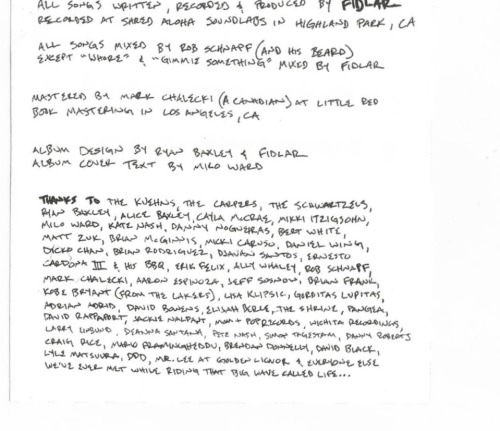 ALL SONGS WRITTEN, RECORDED & PRODUCED BY FIDLAR
RECORDED AT SHRED ALOHA SOUNDLABS IN HIGHLAND PARK, CA
ALL SONGS MIXED BY ROB SCHNAPF (AND HIS BEARD)
EXCEPT "WHORE" & "GIMMIE SOMETHING" MIXED BY FIDLAR
MASTERED BY MARK CHALECKI (A CANADIAN) AT LITTLE RED
BOOK MASTERING IN LOS ANGELES, CA
ALBUM DESIGN BY RYAN BAXLEY & FIDLAR
ALBUM COVER TEXT BY MILO WARD
THANKS TO THE KUEHNS, THE CARPERS, THE SCHWARTZELS,
RYAN BAXLEY, ALICE BAXLEY, CAYLA McCRAE, MIKKI ITZIGSOHN,
MILO WARD, KATE NASH, DANNY NOGUEIRAS, BERT WHITE,
MATT ZUK, BRIAN McGINNIS, MICKI CARUSO, DANIEL WING,
CHAN, BRIAN RODRIGUEZ, DJAVAN SANTOS, ERNESTO
CARDONA III & HIS BBQ, ERIK FELIX, ALLY WHALEY, ROB SCHNAPF,
MARK CHALECKI, AARON ESPINOZA, JEFF SOSNOW, BRIAN FRANK,
KOBE BRYANT (FROM THE LAKERS), LISA KLIPSIC, GORDITAS LUPITAS,
ADRIAN DAVID BOWENS, ELIJAH THE SHRINE, PANGEA,
DAVID RAPPAPORT, JACKIE NALPANT, MOM + POP RECORDS, WICHITA RECORDINGS,
LARRY DEANNA SANTANA, PETE NASH, SIMON TAGESTAM, DANNY ROBERTS
CRAIG RICE, MARIO BRENDAN DONNELLY, DAVID BLACK,
LYLE MATSUURA, DDD, MR. LEE AT GOLDEN LIQUOR & EVERYONE ELSE
WE'VE EVER MET WHILE RIDING THAT BIG WAVE CALLED LIFE...